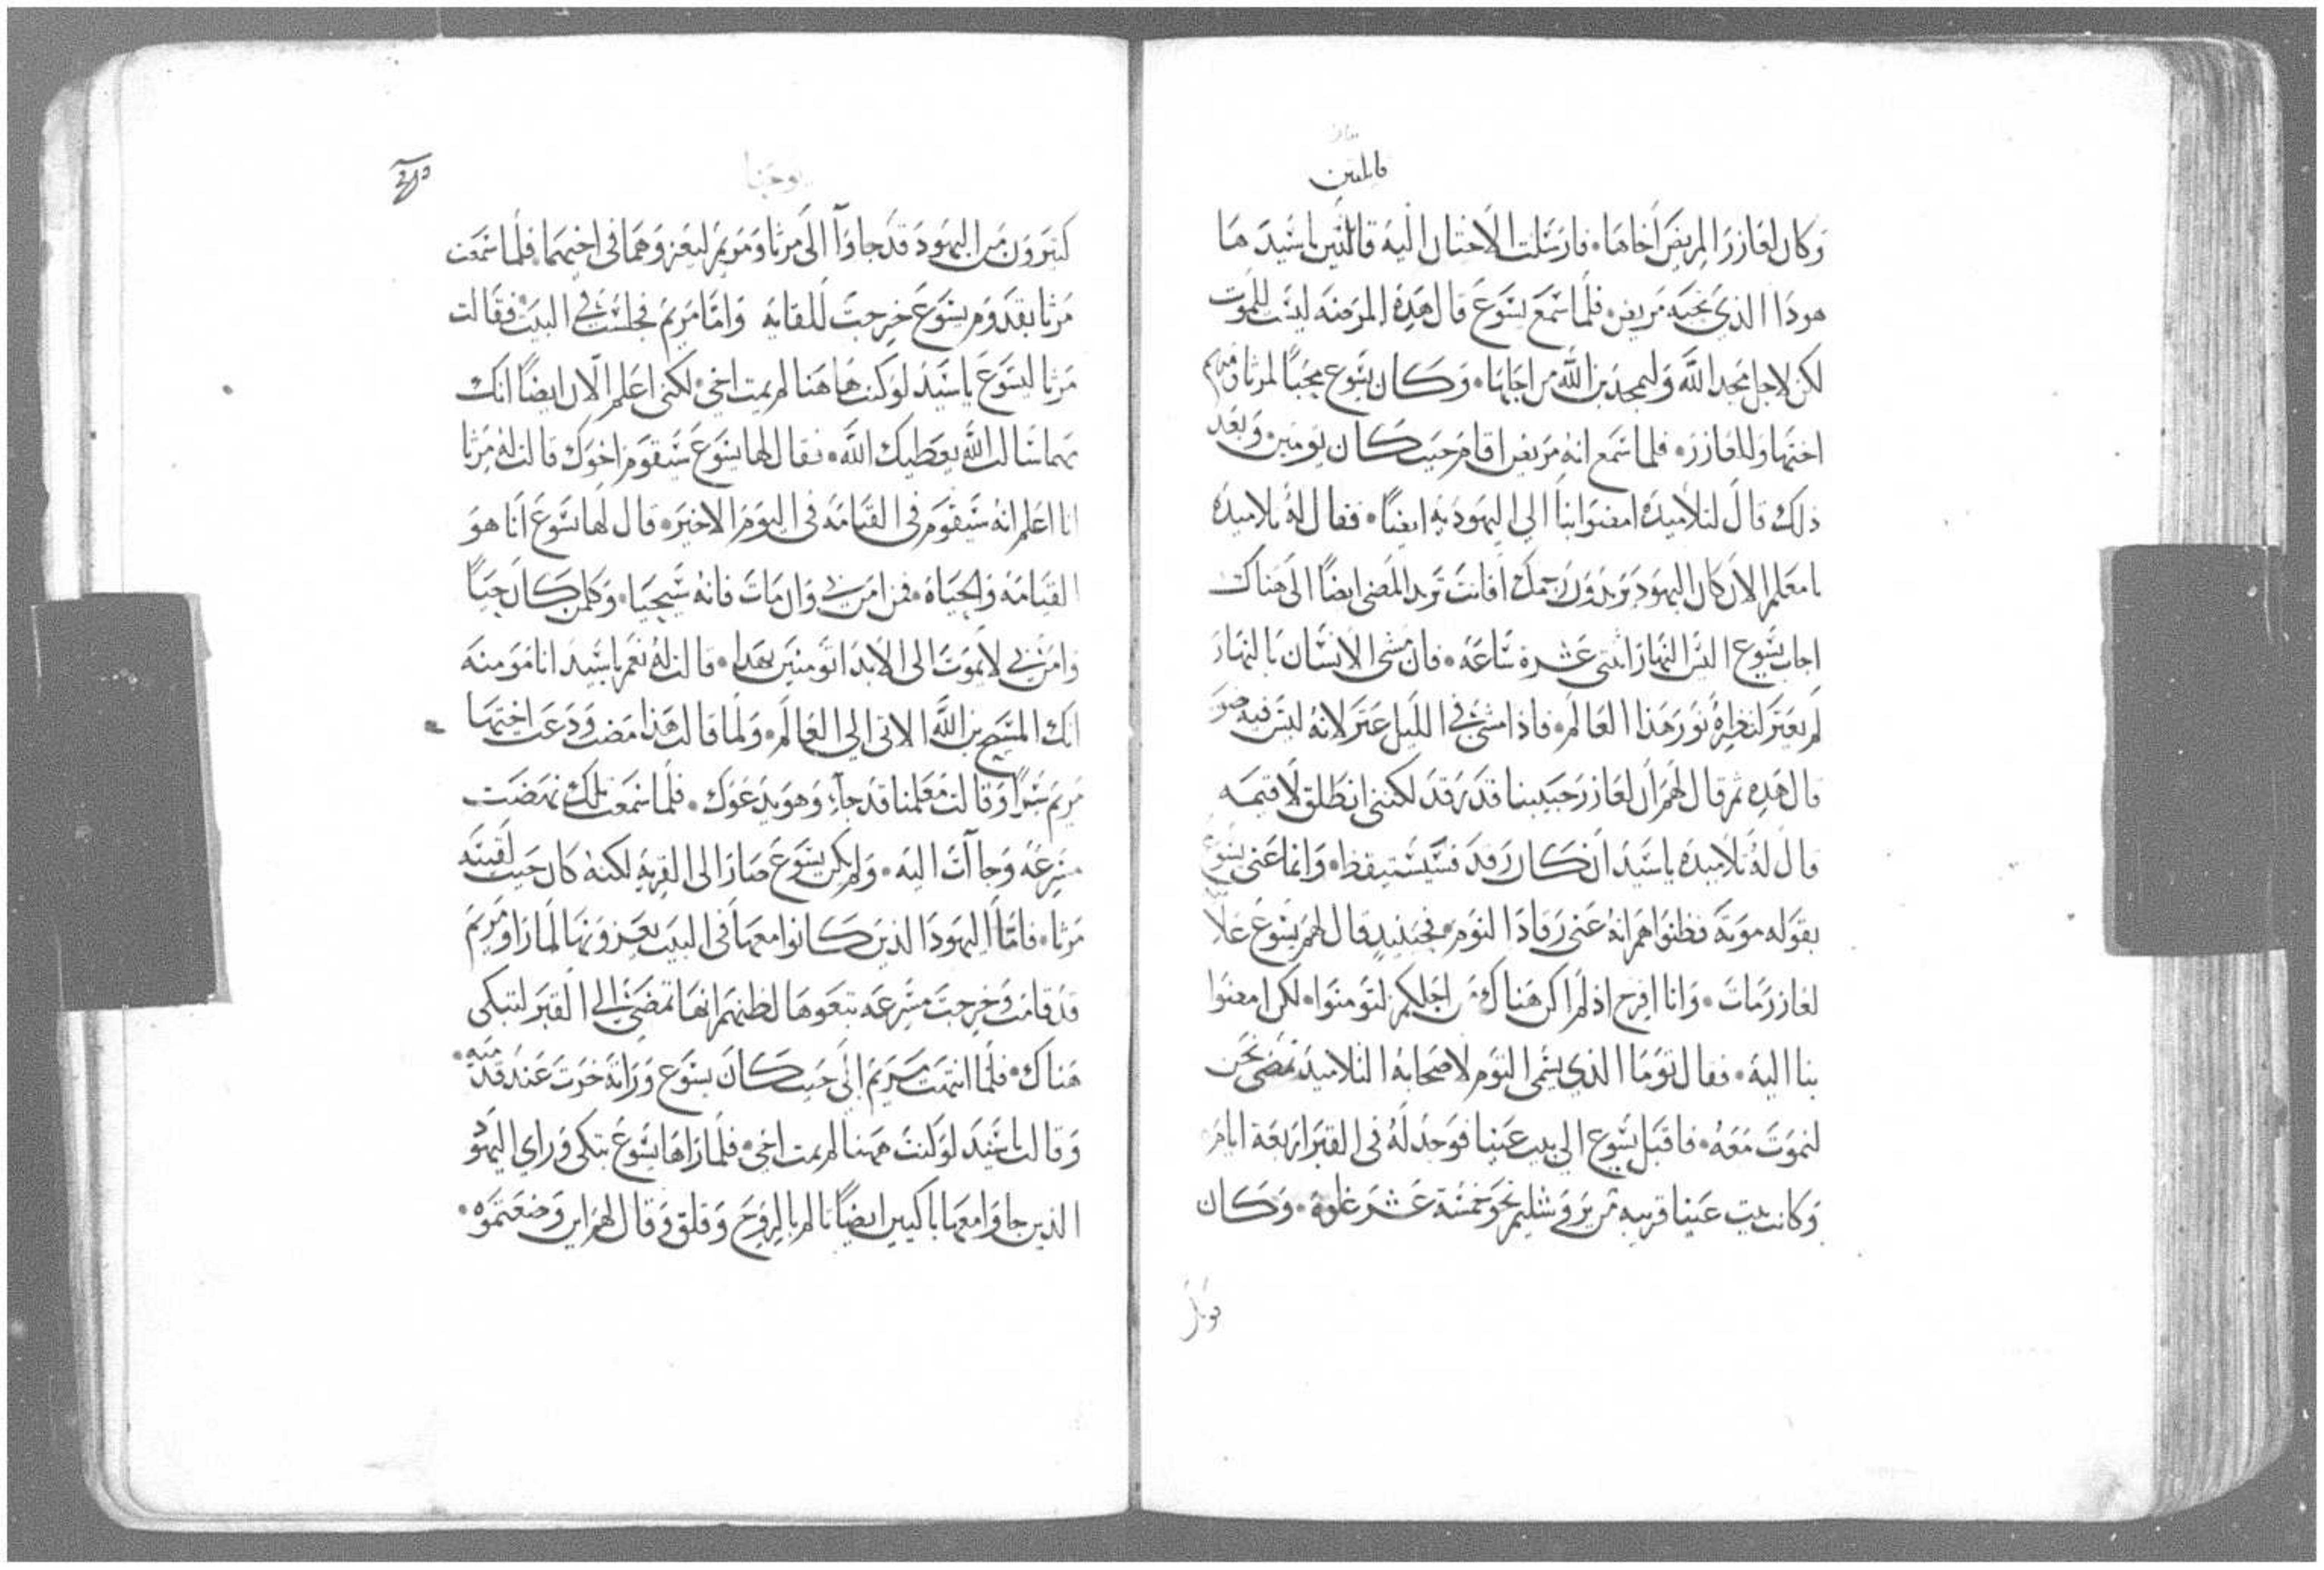 قايلتين
وكان لعازر المريض اخاها. فارسلت الاختان اليه قائلتين يا سيد ها
هوذا الذي تحبه مريض. فلما سمع يسوع قال هذه المرضه ليست للموت
لكن لاجل مجد الله وليمجد بن الله من اجلها. وكان يسوع محبًا لمرثا ومريم
اختها ولعازر. فلما سمع انه مريض اقام حيث كان يومين. وبعد
ذلك قال لتلاميذه امضوا بنا الي اليهوديه ايضًا. فقال له تلاميذه
يا معلم الان كان اليهود يريدون رجمك افانت تريد المضي ايضًا الى هناك
اجاب يسوع اليس النهار اثنتى عشرة ساعة. فان مشى الانسان بالنهار
لم يعثر لنظره نور هذا العالم. فاذا مشى في الليل عثر لانه ليس فيه ضو
قال هذه ثم قال لهم ان لعازر حبيبنا قد رقد لكنني انطلق لاقيمه
قال له تلاميذه يا سيد ان كان رقد فسيستيقظ. وانما عنى يسوع
بقوله موته فظنوا هم انه عنى رقاد النوم. فحينيذ قال لهم يسوع علا
لعازر مات. وانا افرح اذ لم اكن هناك من اجلكم لتومنوا. لكن امضوا
بنا اليه. فقال توما الذي يسمى التوم لاصحابه التلاميذ نمضى نحن
لنموت معه. فاقبل يسوع الى بيت عنيا فوجد له في القبر اربعة ايام.
وكانت بيت عنيا قريبه من يروشليم نحو خمسة عشر غلوة. وكان
قوبل
يوحنا
كثيرون من اليهود قد جاوآ الى مرثا ومريم ليعزوهما في اخيهما. فلما سمعت
مرثا بقدوم يسوع خرجت للقايه واما مريم فجلست في البيت. فقالت
مرثا ليسوع يا سيد لو كنت هاهنا لم يمت اخي. لكني اعلم الان ايضًا انك
مهما سالت الله يعطيك الله. فقال لها يسوع سيقوم اخوك قالت له مرثا
انا اعلم انه سيقوم في القيامة في اليوم الاخير. قال لها يسوع انا هو
القيامة والحياة. فمن امن بي وان مات فانه سيحيا. وكلمن كان حيًا
وامن بي لا يموت الى الابد اتومنين بهذا. قالت له نعم يا سيد انا مومنه
انك المسيح بن الله الاتى الي العالم. ولما قالت هذا مضت ودعت اختها
مريم سرًا وقالت معلمنا قد جآء وهو يدعوك. فلما سمعت تلك نهضت
مسرعه وجاآت اليه. ولم يكن يسوع صار الى القرية لكنه كان حيث لقيته
مرثا. فاما اليهود الذين كانوا معها في البيت يعزونها لما راو مريم
قد قامت وخرجت مسرعه تبعوها لظنهم انها تمضي الي القبر لتبكى
هناك. فلما انتهت مريم الى حيث كان يسوع وراته خرت عند قدميه.
وقالت يا سيد لو كنت ههنا لم يمت اخي. فلما راها يسوع تبكى وراي اليهود
الذين جاوا معها باكيين ايضًا تالم بالروح وقلق وقال لهم اين وضعتموه.